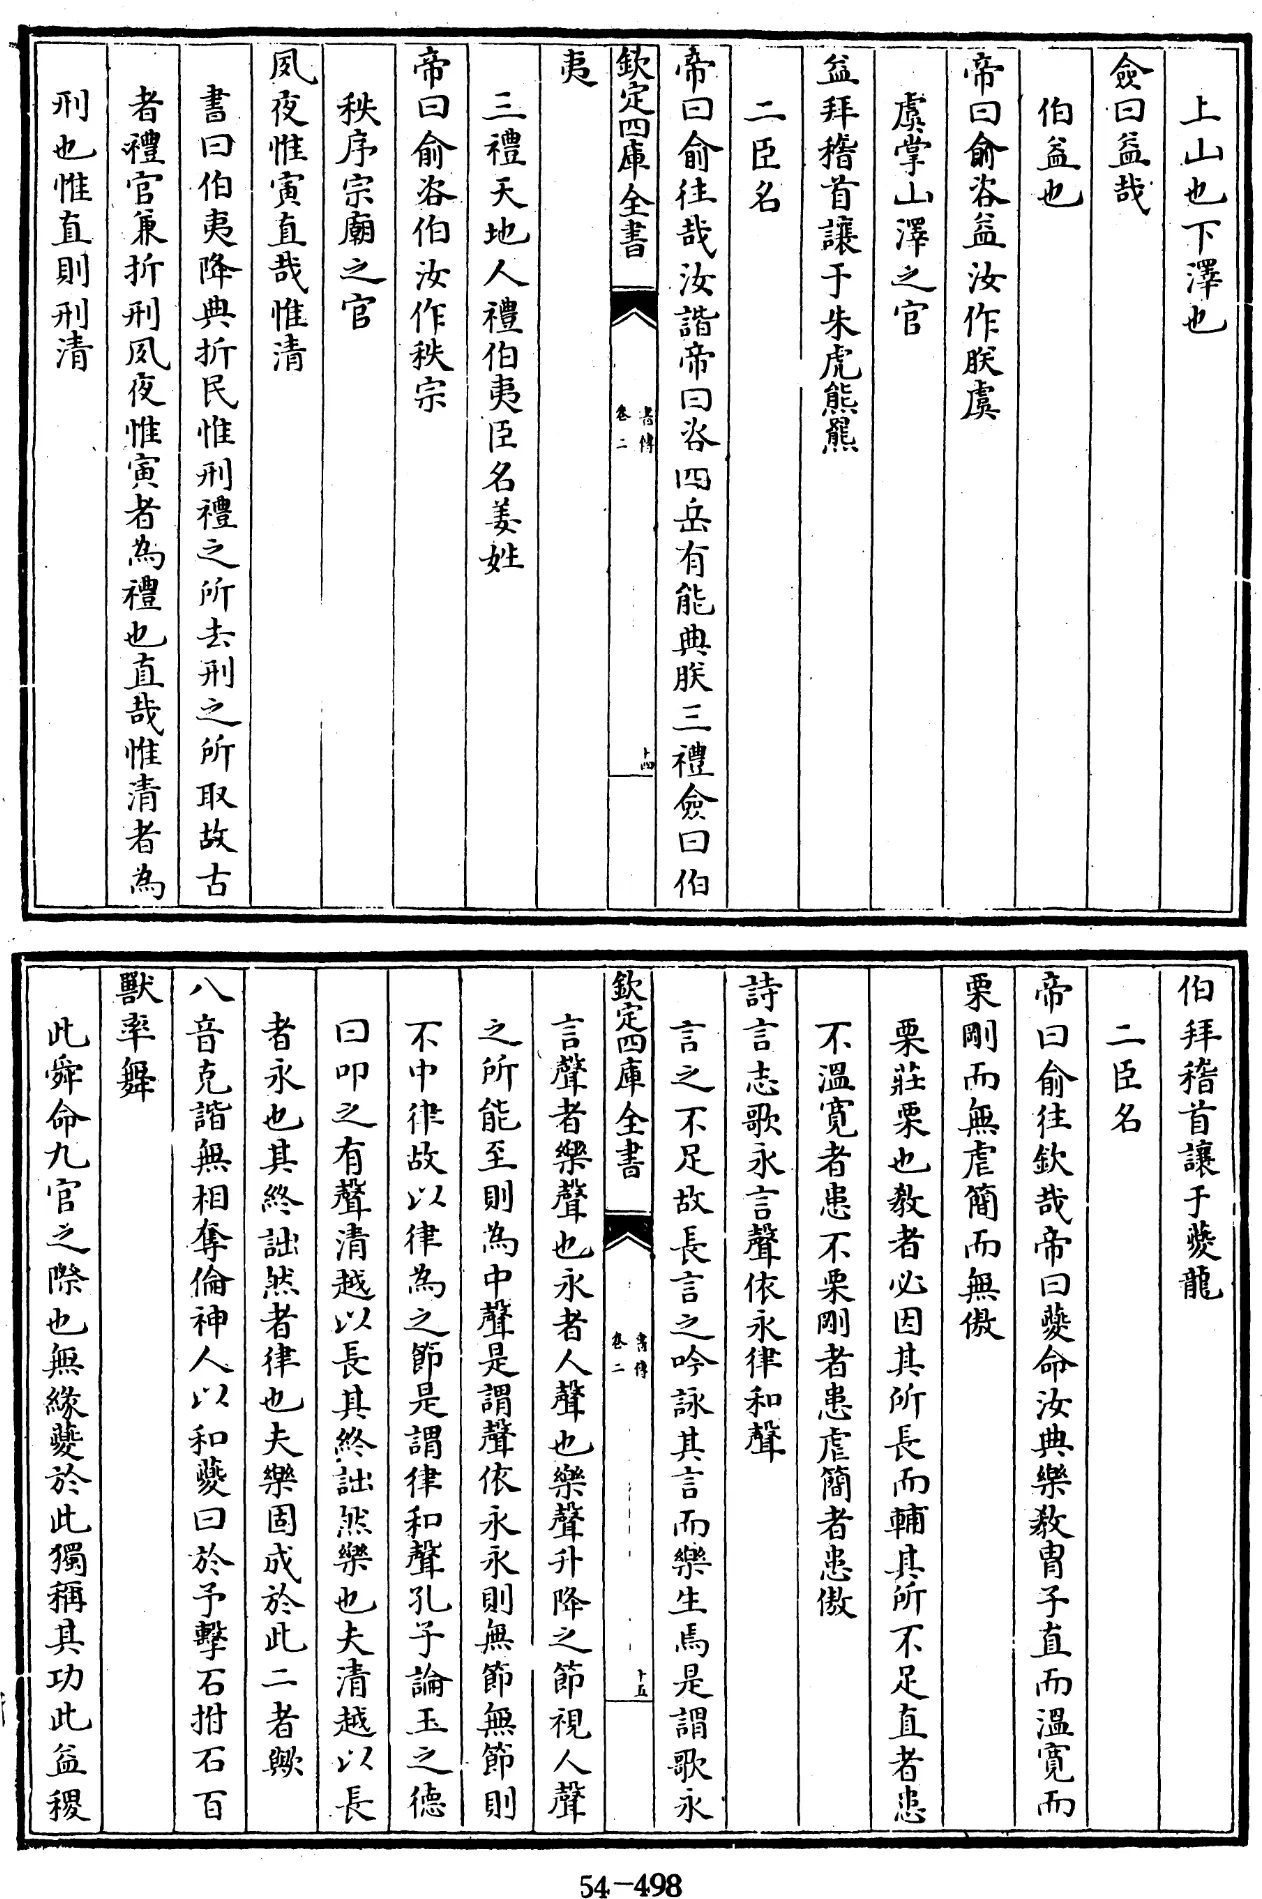 上山也下澤也
僉曰益哉
伯益也
帝曰俞咨益汝作朕虞
虞掌山澤之官
益拜稽首讓于朱虎熊羆
二臣名
帝曰俞往哉汝諧帝曰咨四岳有能典朕三禮僉曰伯
欽定四庫全書
書傳
卷二
十四
夷
三禮天地人禮伯夷臣名姜姓
帝曰俞咨伯汝作秩宗
秩序宗廟之官
夙夜惟寅直哉惟清
書曰伯夷降典折民惟刑禮之所去刑之所取故古
者禮官兼折刑夙夜惟寅者為禮也直哉惟清者為
刑也惟直則刑清
伯拜稽首讓于夔龍
二臣名
帝曰俞往欽哉帝曰夔命汝典樂教胄子直而溫寬而
栗剛而無虐簡而無傲
栗莊栗也教者必因其所長而輔其所不足直者患
不溫寬者患不栗剛者患虐簡者患傲
詩言志歌永言聲依永律和聲
言之不足故長言之吟詠其言而樂生焉是謂歌永
欽定四庫全書
書傳
卷二
十五
言聲者樂聲也永者人聲也樂聲升降之節視人聲
之所能至則為中聲是謂聲依永永則無節無節則
不中律故以律為之節是謂律和聲孔子論玉之德
曰叩之有聲清越以長其終詘然樂也夫清越以長
者永也其終詘然者律也夫樂固成於此二者歟
八音克諧無相奪倫神人以和夔曰於予擊石拊石百
獸率舞
此舜命九官之際也無緣夔於此獨稱其功此益稷
54-498